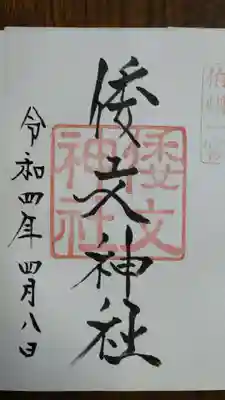 倭文神社
令和四年四月八日
倭文
神社